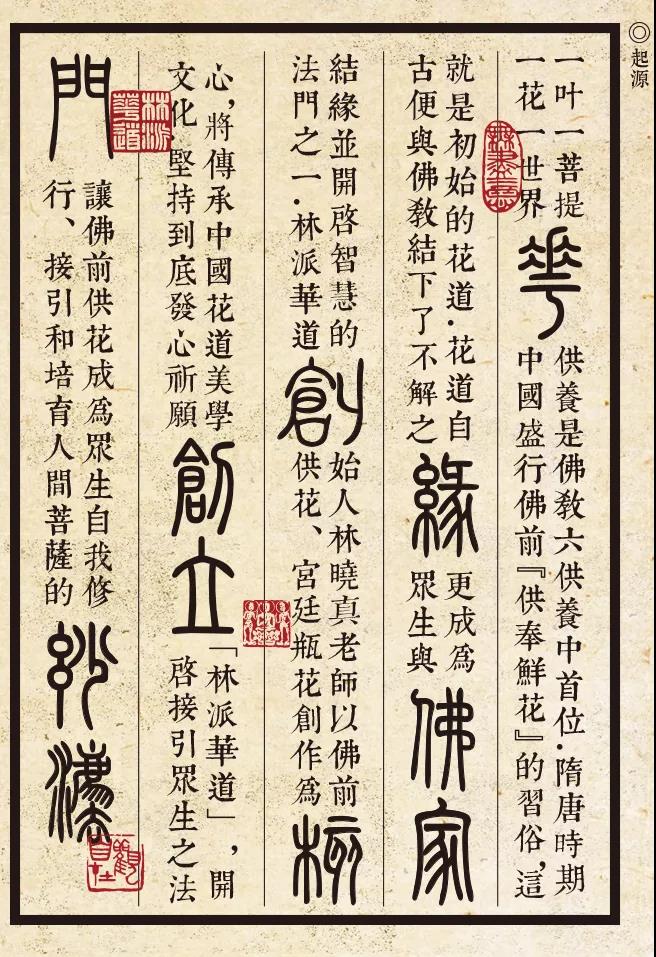 ◎起源
一叶一菩提
一花一世界
華
供養是佛教六供養中首位.隋唐時期
中國盛行佛前『供奉鮮花』的習俗,這
就是初始的花道.花道自
古便與佛教結下了不解之
緣
更成爲
眾生與
佛家
結緣並開啓智慧的
法門之一.林派華道
創
始人林曉真老師以佛前
供花、宮廷瓶花創作爲
核
心,將傳承中國花道美學
文化.堅持到底發心祈願
創立
「林派華道」,開
啓接引眾生之法
門
林派華道
讓佛前供花成爲眾生自我修
行、接引和培育人間菩薩的
妙灋